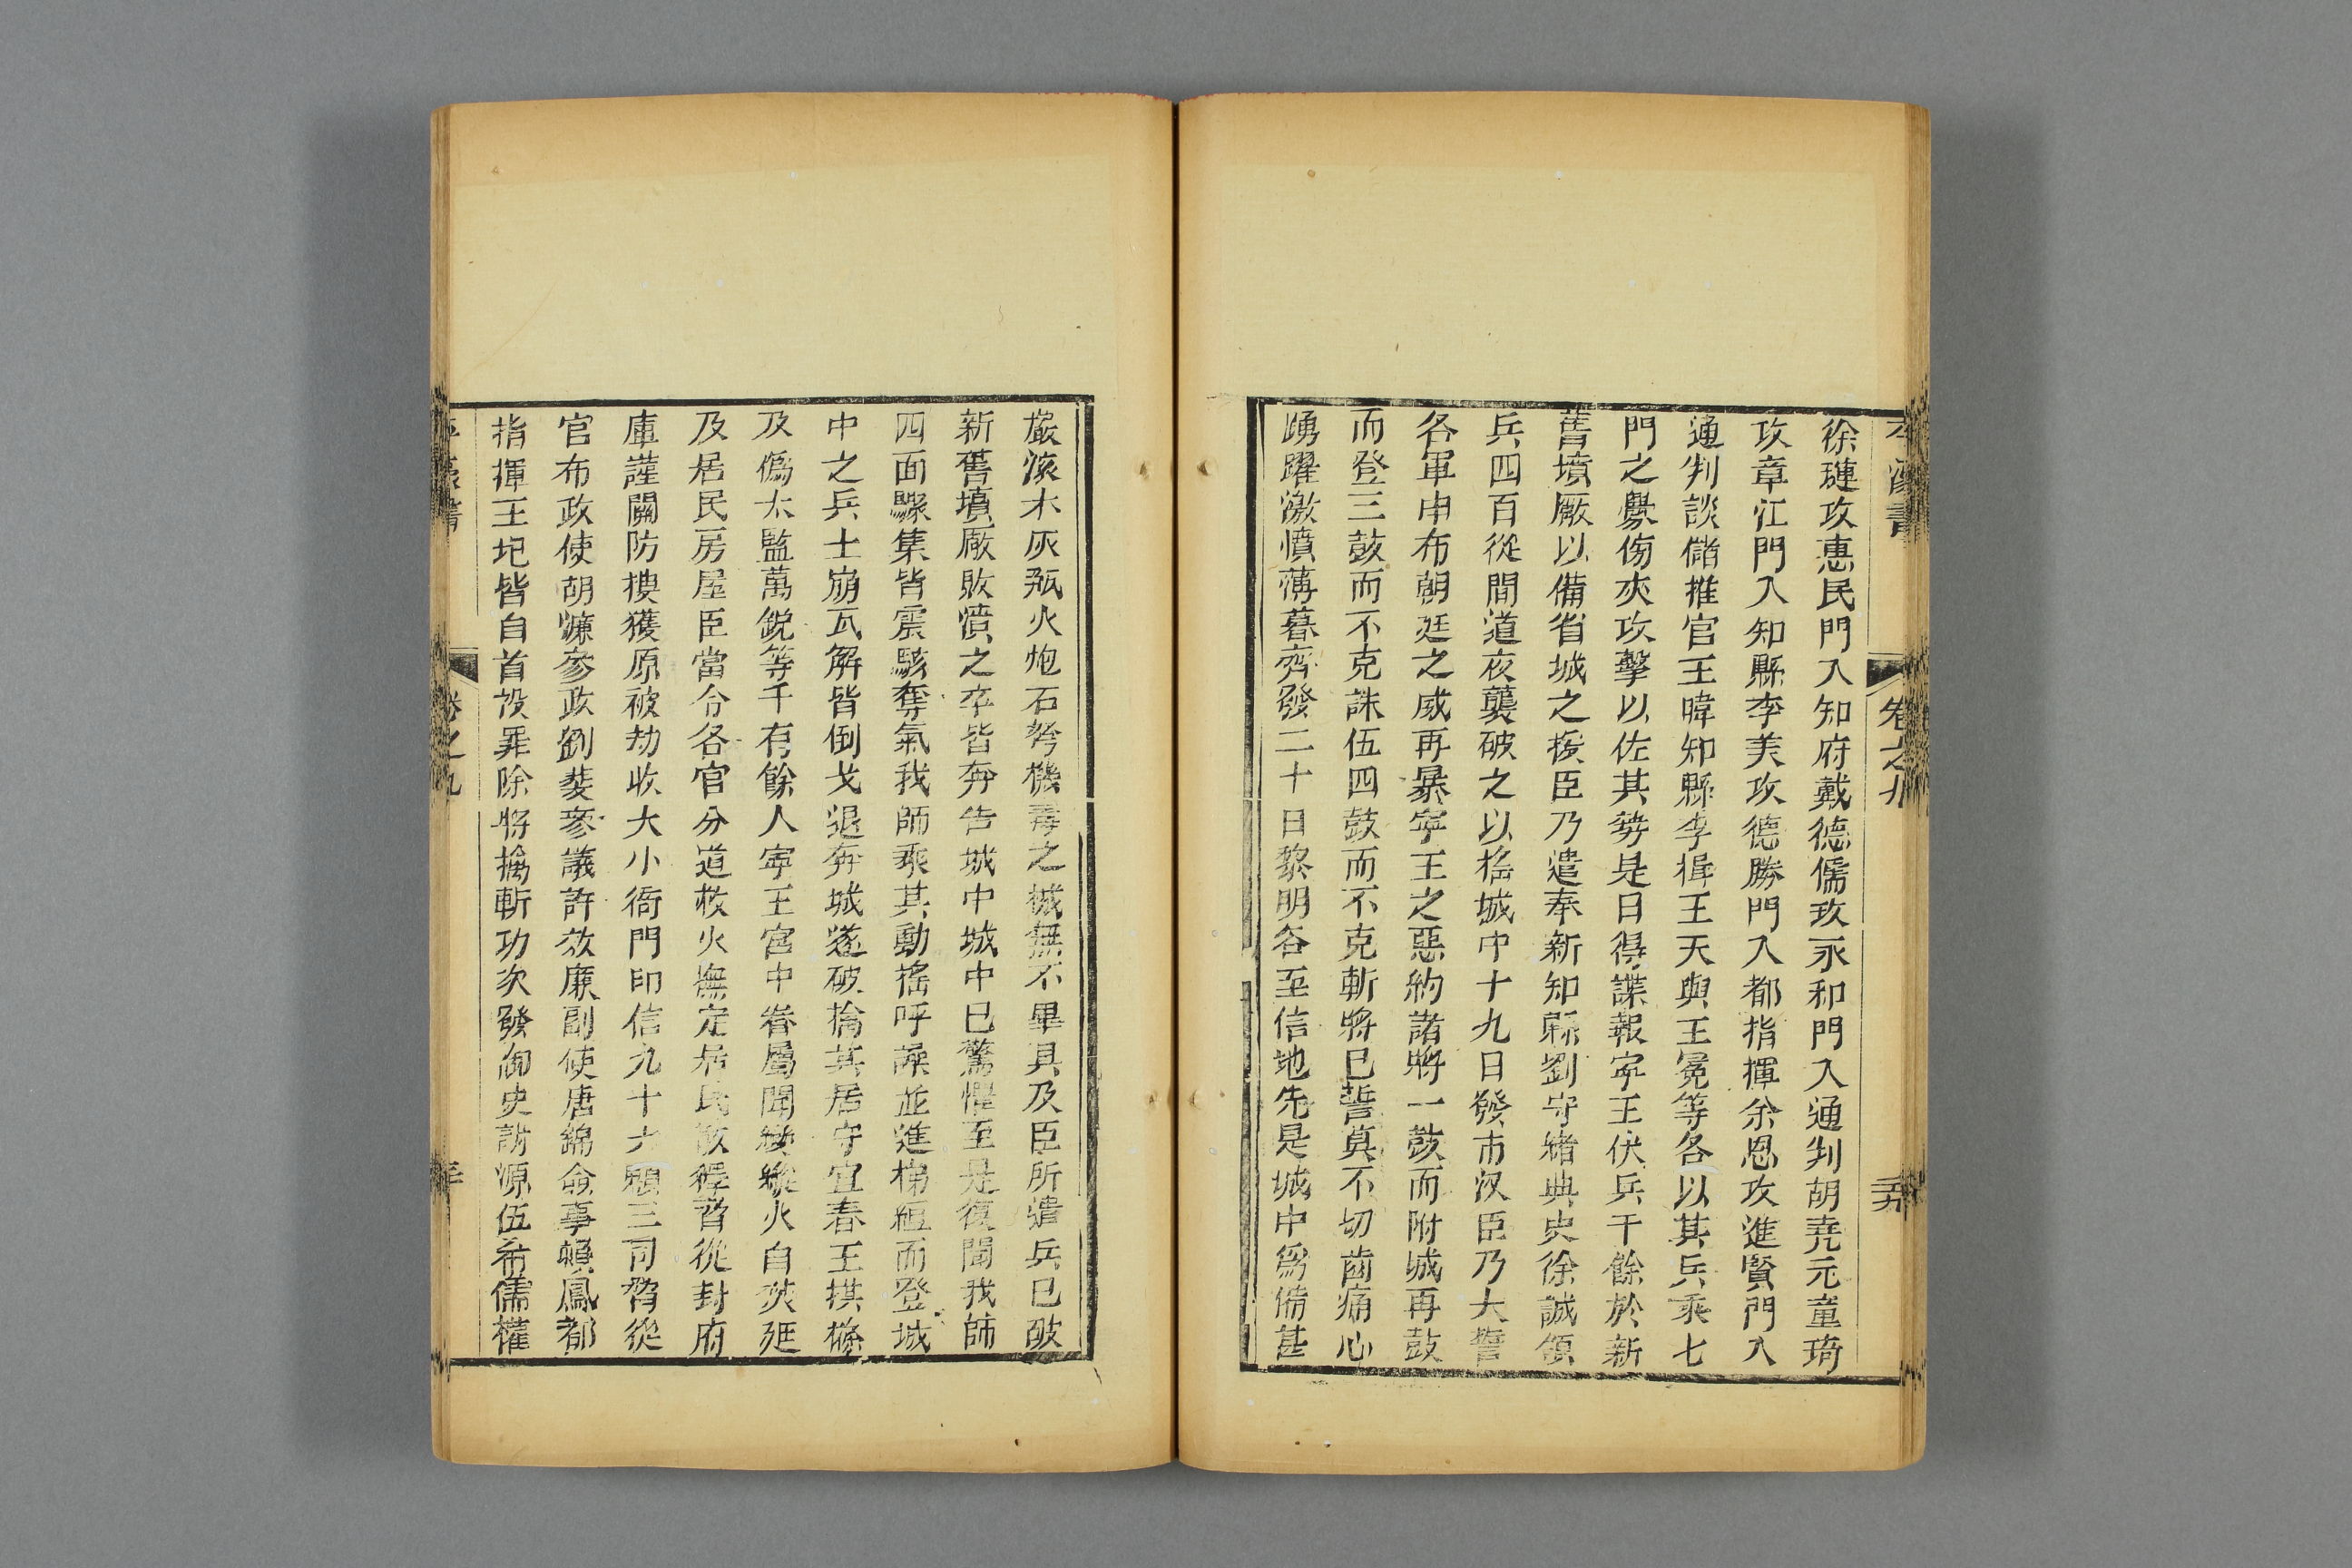 卷之九
徐璉攻惠民門入知府戴德儒攻永和門入通判胡堯元童琦
攻章江門入知縣李美攻德勝門入都指揮余恩攻進賢門入
通判談儲推官王暐知縣李楫王天與王冕等各以其兵乘七
門之釁傍夾攻擊以佐其勢是日得諜報寧王伏兵千餘於新
舊墳厰以備省城之援臣乃遣奉新知縣劉守緒典史徐誠領
兵四百從間道夜襲破之以搖城中十九日發市汊臣乃大誓
各軍申布朝廷之威再暴寧王之惡約諸將一鼓而附城再鼓
而登三鼓而不克誅伍四鼓而不克斬將已誓莫不切齒痛心
踴躍激憤薄暮齊發二十日黎明各至信地先是城中爲備甚
嚴滚木灰瓶火炮石弩機毒之械無不畢具及臣所遣兵已破
新舊墳厰敗潰之卒皆奔告城中城中已驚懼至是復聞我師
四面驟集皆震駭奪氣我師乘其動搖呼譟並進梯絙而登城
中之兵士崩瓦解皆倒戈退奔城遂破擒其居守宜春王拱樤
及僞太監萬銳等千有餘人寧王宮中眷屬聞變縱火自焚延
及居民房屋臣當令各官分道救火撫定居民散釋脅從封府
庫謹關防搜獲原被劫收大小衙門印信九十六顆三司脅從
官布政使胡濂參政劉斐參議許效廉副使唐錦僉事賴鳳都
指揮王玘皆自首投罪除將擒斬功次發御史謝源伍希儒權
卷之九